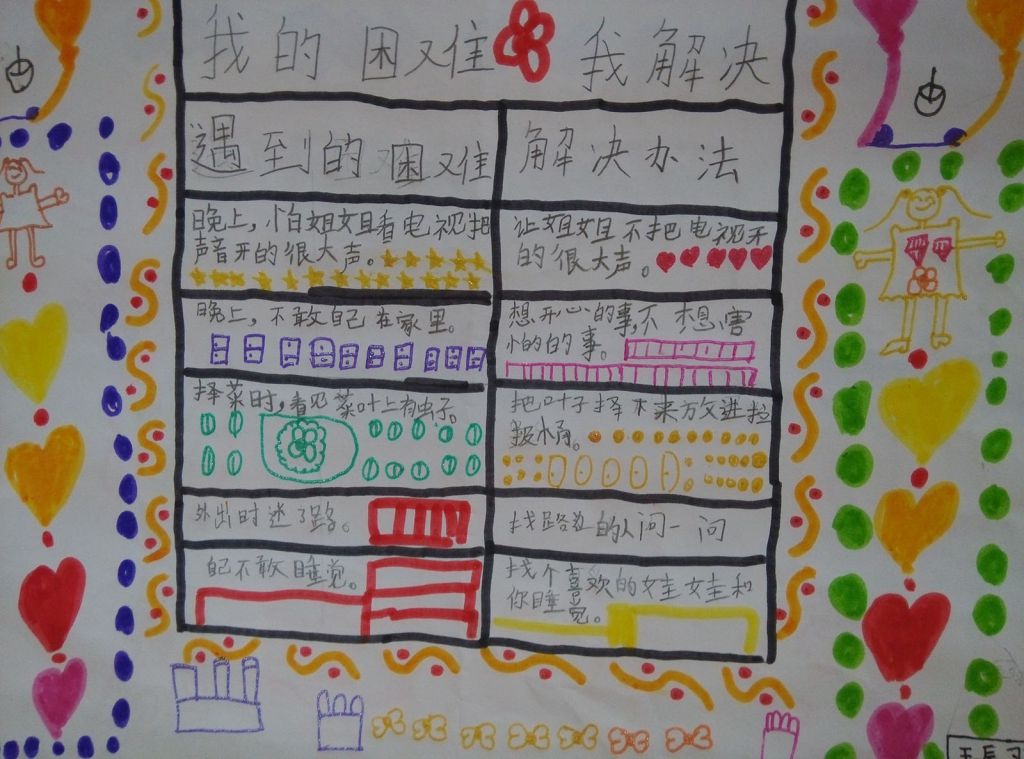 我的困难 我解决
遇到的困难
解决办法
晚上，怕姐姐看电视把
声音开的很大声。
让姐姐不把电视开
的很大声。
晚上，不敢自己在家里。
想开心的事,不想害
怕的的事。
择菜时，看见菜叶上有虫子。
把叶子择下来放进垃
圾桶。
外出时迷了路。
找路边的人问一问
自己不敢睡觉。
找个喜欢的娃娃和
你睡觉。